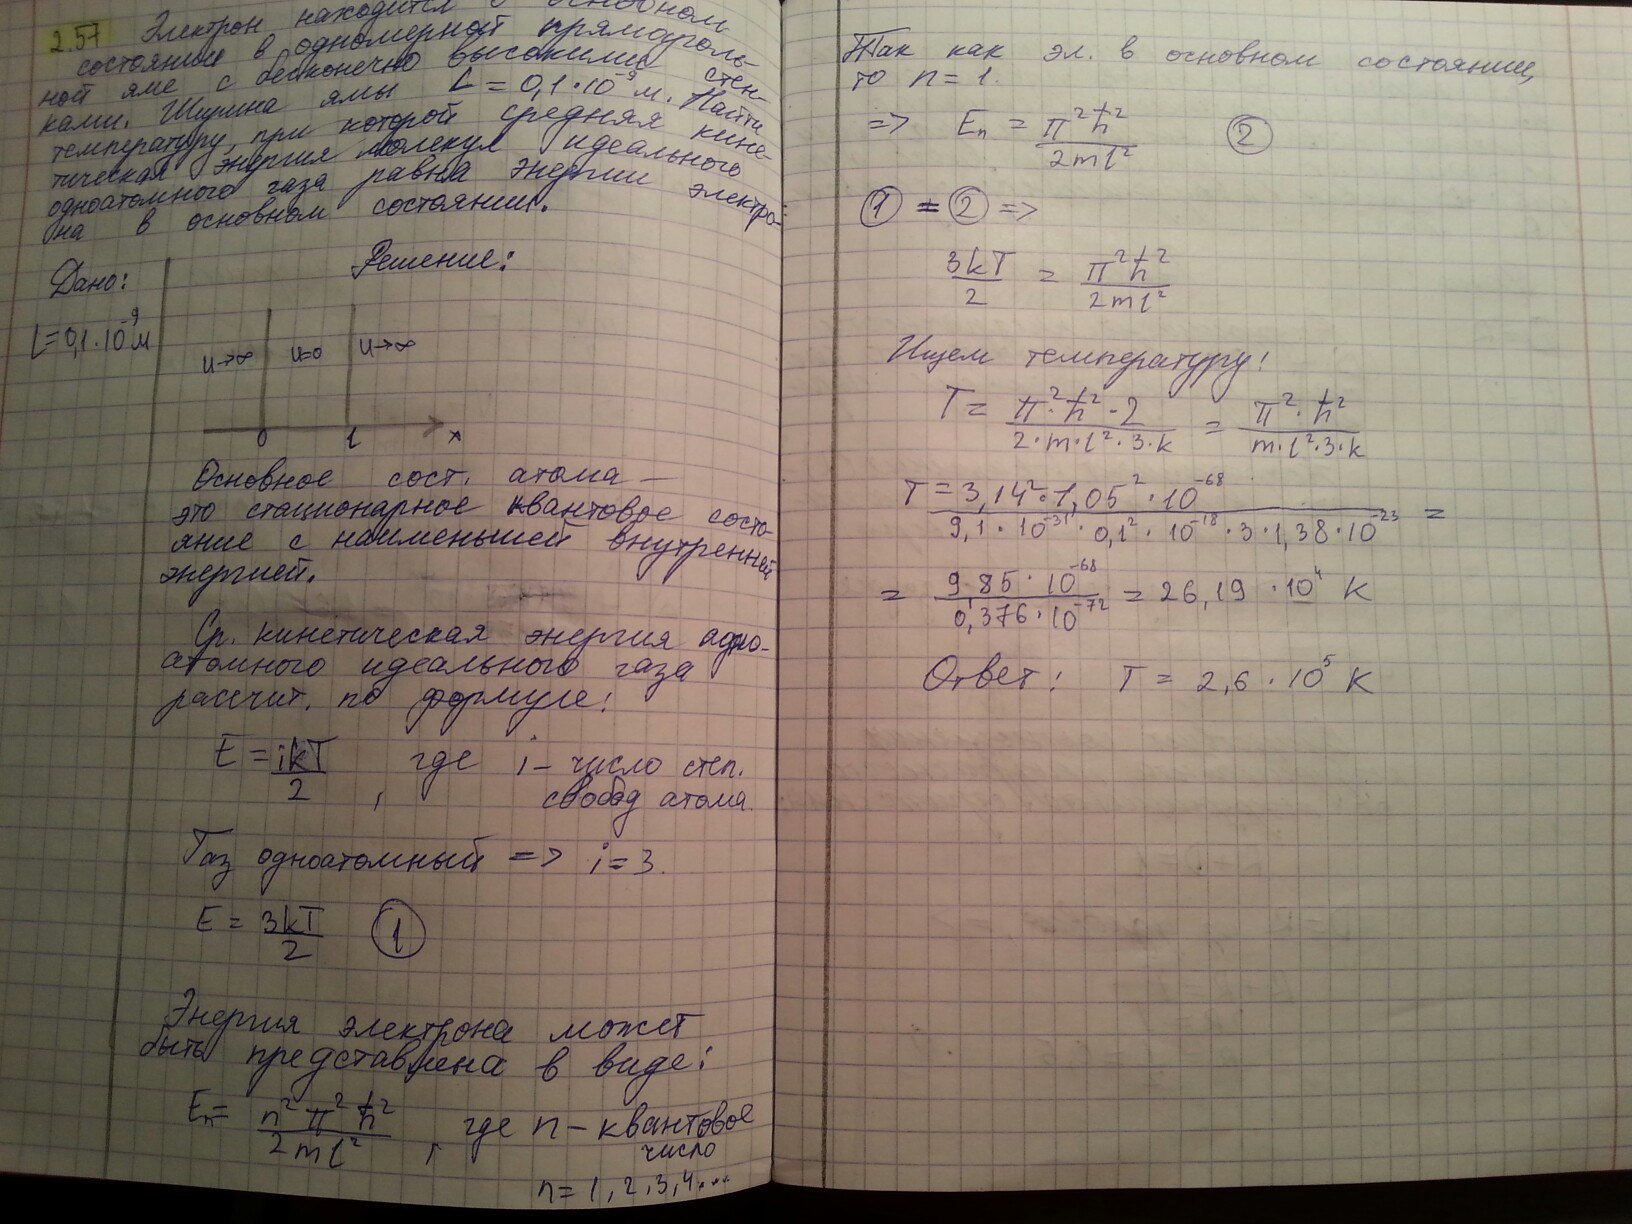 2.57 Электрон находится в основном
состоянии в одномерной прямоуголь-
ной яме с бесконечно высокими стен-
ками. Ширина ямы L = 0,1·10⁻⁹ м. Найти
температуру, при которой средняя кине-
тическая энергия молекул идеального
одноатомного газа равна энергии электро-
на в основном состоянии.
Дано:
L=0,1·10⁻⁹м
Решение:
U→∞ U=0 U→∞
0 l x
Основное сост. атома —
это стационарное квантовое состо-
яние с наименьшей внутренней
энергией.
Ср. кинетическая энергия одно-
атомного идеального газа
рассчит. по формуле:
E = ikT/2, где i – число степ.
свобод атома.
Газ одноатомный => i=3.
E = 3kT/2 ①
Энергия электрона может
быть представлена в виде:
Eₙ= n²π²ħ²/2ml², где n – квантовое
число
n = 1,2,3,4...
Так как эл. в основном состоянии,
то n = 1.
=> Eₙ = π²ħ²/2ml² ②
① = ② =>
3kT/2 = π²ħ²/2ml²
Ищем температуру:
T = π²·ħ²·2/2·m·l²·3·k = π²·ħ²/m·l²·3·k
T = 3,14²·1,05²·10⁻⁶⁸/9,1·10⁻³¹·0,1²·10⁻¹⁸·3·1,38·10⁻²³ =
= 9,85·10⁻⁶⁸/0,376·10⁻⁷² = 26,19·10⁴ K
Ответ: T = 2,6·10⁵ K